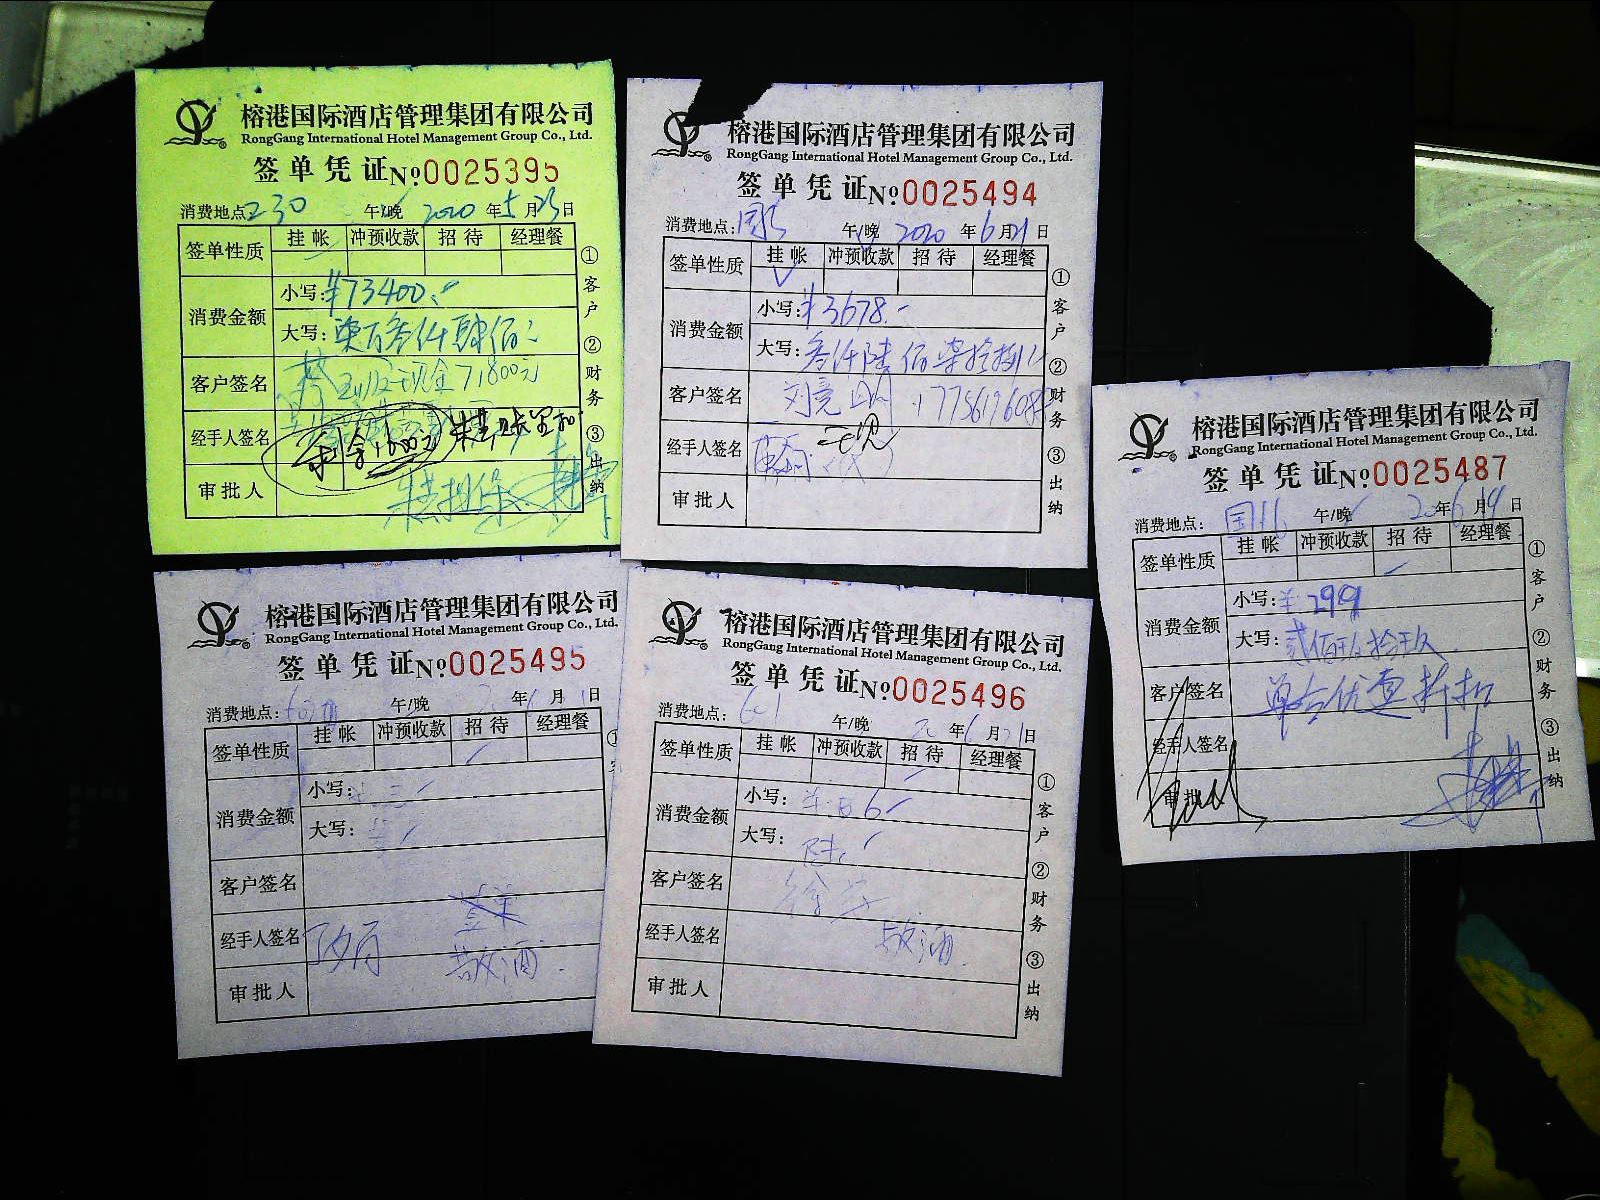 榕港国际酒店管理集团有限公司
RongGang International Hotel Management Group Co., Ltd.
签单凭证 No 0025395
消费地点: 230 午/晚 2020 年 5 月 23 日
签单性质 挂帐 冲预收款 招待 经理餐
消费金额 小写: ¥73400.-
大写: 柒万叁仟肆佰
客户签名 现金71800元
经手人签名 剩余1600元
审批人 担保
① 客户 ② 财务 ③ 出纳
榕港国际酒店管理集团有限公司
RongGang International Hotel Management Group Co., Ltd.
签单凭证 No 0025494
消费地点: 午/晚 2020 年 6 月 21 日
签单性质 挂帐 冲预收款 招待 经理餐
消费金额 小写: ¥3678.-
大写: 叁仟陆佰柒拾捌
客户签名
经手人签名
审批人
① 客户 ② 财务 ③ 出纳
榕港国际酒店管理集团有限公司
RongGang International Hotel Management Group Co., Ltd.
签单凭证 No 0025487
消费地点: 午/晚 20 年 6 月 19 日
签单性质 挂帐 冲预收款 招待 经理餐
消费金额 小写: ¥299
大写: 贰佰玖拾玖
客户签名 单台优惠折扣
经手人签名
审批
① 客户 ② 财务 ③ 出纳
榕港国际酒店管理集团有限公司
RongGang International Hotel Management Group Co., Ltd.
签单凭证 No 0025495
消费地点: 午/晚 年 6 月 日
签单性质 挂帐 冲预收款 招待 经理餐
消费金额 小写:
大写:
客户签名
经手人签名 敬酒
审批人
榕港国际酒店管理集团有限公司
RongGang International Hotel Management Group Co., Ltd.
签单凭证 No 0025496
消费地点: 601 午/晚 20 年 6 月 21 日
签单性质 挂帐 冲预收款 招待 经理餐
消费金额 小写:
大写: 陆
客户签名
经手人签名 敬酒
审批人
① 客户 ② 财务 ③ 出纳